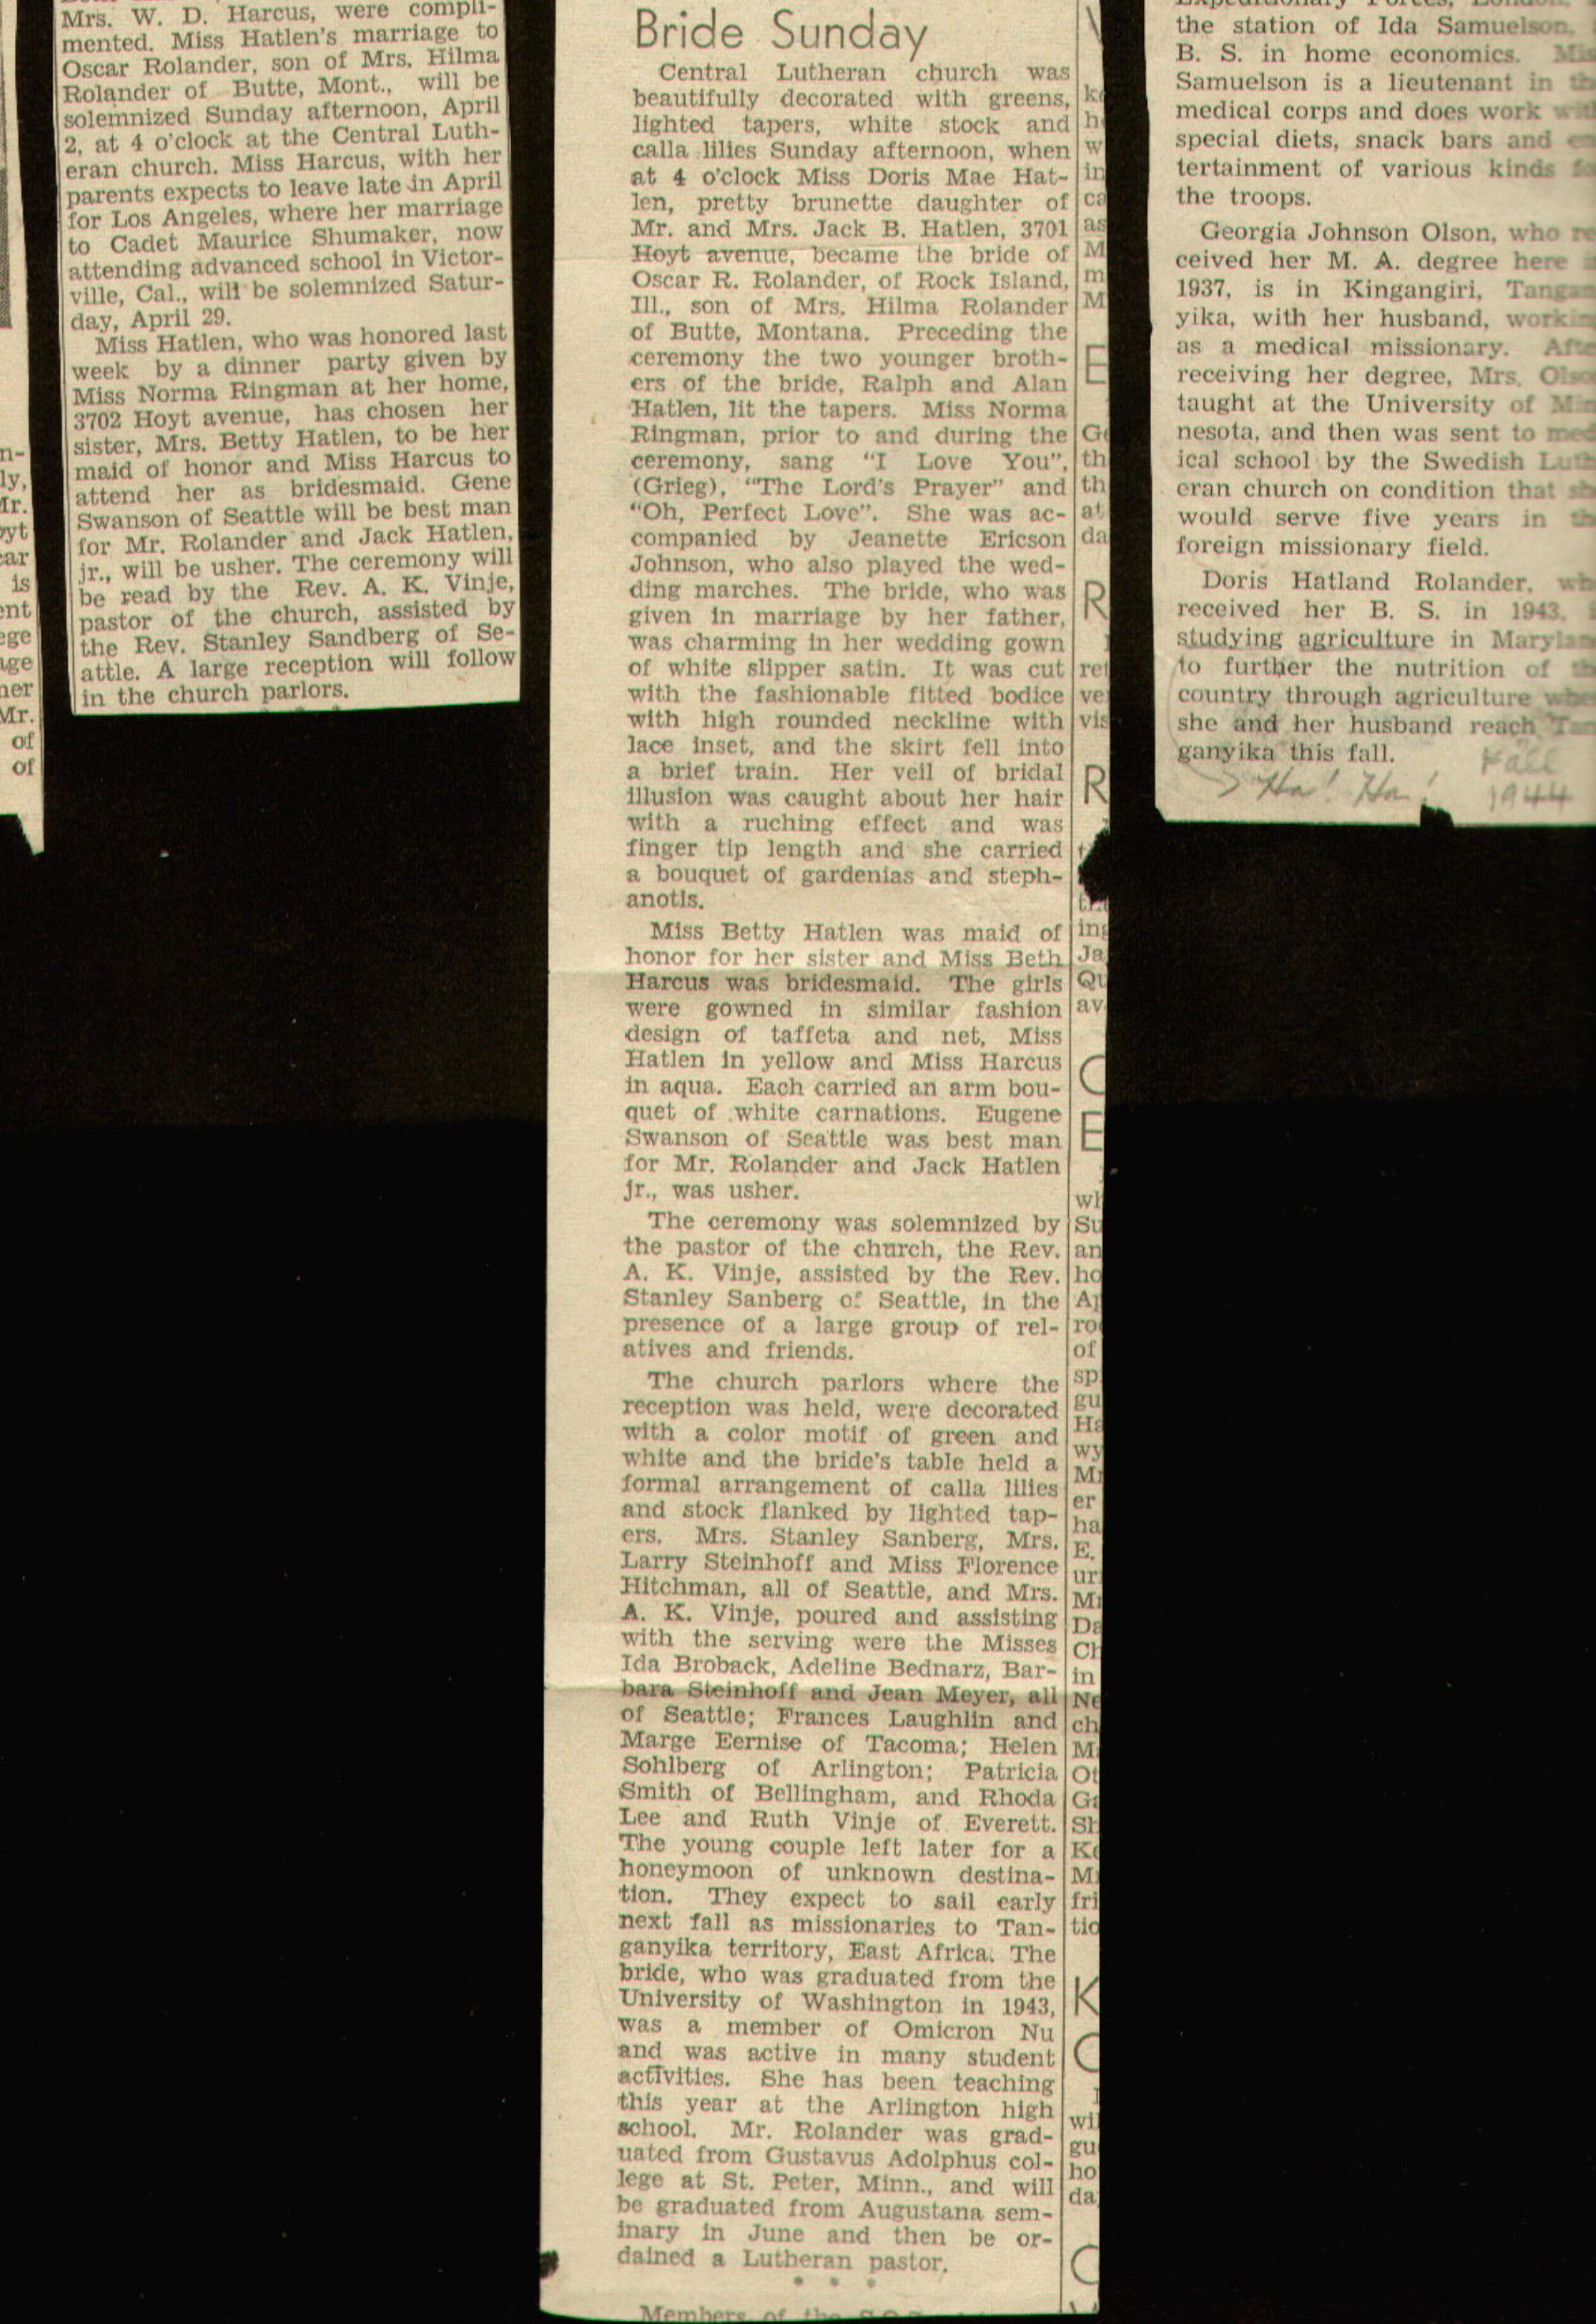 Mrs. W. D. Harcus, were compli-
mented. Miss Hatlen's marriage to
Oscar Rolander, son of Mrs. Hilma
Rolander of Butte, Mont., will be
solemnized Sunday afternoon, April
2, at 4 o'clock at the Central Luth-
eran church. Miss Harcus, with her
parents expects to leave late in April
for Los Angeles, where her marriage
to Cadet Maurice Shumaker, now
attending advanced school in Victor-
ville, Cal., will be solemnized Satur-
day, April 29.
Miss Hatlen, who was honored last
week by a dinner party given by
Miss Norma Ringman at her home,
3702 Hoyt avenue, has chosen her
sister, Mrs. Betty Hatlen, to be her
maid of honor and Miss Harcus to
attend her as bridesmaid. Gene
Swanson of Seattle will be best man
for Mr. Rolander and Jack Hatlen,
jr., will be usher. The ceremony will
be read by the Rev. A. K. Vinje,
pastor of the church, assisted by
the Rev. Stanley Sandberg of Se-
attle. A large reception will follow
in the church parlors.
Bride Sunday
Central Lutheran church was
beautifully decorated with greens,
lighted tapers, white stock and
calla lilies Sunday afternoon, when
at 4 o'clock Miss Doris Mae Hat-
len, pretty brunette daughter of
Mr. and Mrs. Jack B. Hatlen, 3701
Hoyt avenue, became the bride of
Oscar R. Rolander, of Rock Island,
Ill., son of Mrs. Hilma Rolander
of Butte, Montana. Preceding the
ceremony the two younger broth-
ers of the bride, Ralph and Alan
Hatlen, lit the tapers. Miss Norma
Ringman, prior to and during the
ceremony, sang "I Love You",
(Grieg), "The Lord's Prayer" and
"Oh, Perfect Love". She was ac-
companied by Jeanette Ericson
Johnson, who also played the wed-
ding marches. The bride, who was
given in marriage by her father,
was charming in her wedding gown
of white slipper satin. It was cut
with the fashionable fitted bodice
with high rounded neckline with
lace inset, and the skirt fell into
a brief train. Her veil of bridal
illusion was caught about her hair
with a ruching effect and was
finger tip length and she carried
a bouquet of gardenias and steph-
anotis.
Miss Betty Hatlen was maid of
honor for her sister and Miss Beth
Harcus was bridesmaid. The girls
were gowned in similar fashion
design of taffeta and net, Miss
Hatlen in yellow and Miss Harcus
in aqua. Each carried an arm bou-
quet of white carnations. Eugene
Swanson of Seattle was best man
for Mr. Rolander and Jack Hatlen
jr., was usher.
The ceremony was solemnized by
the pastor of the church, the Rev.
A. K. Vinje, assisted by the Rev.
Stanley Sanberg of Seattle, in the
presence of a large group of rel-
atives and friends.
The church parlors where the
reception was held, were decorated
with a color motif of green and
white and the bride's table held a
formal arrangement of calla lilies
and stock flanked by lighted tap-
ers. Mrs. Stanley Sanberg, Mrs.
Larry Steinhoff and Miss Florence
Hitchman, all of Seattle, and Mrs.
A. K. Vinje, poured and assisting
with the serving were the Misses
Ida Broback, Adeline Bednarz, Bar-
bara Steinhoff and Jean Meyer, all
of Seattle; Frances Laughlin and
Marge Eernise of Tacoma; Helen
Sohlberg of Arlington; Patricia
Smith of Bellingham, and Rhoda
Lee and Ruth Vinje of Everett.
The young couple left later for a
honeymoon of unknown destina-
tion. They expect to sail early
next fall as missionaries to Tan-
ganyika territory, East Africa. The
bride, who was graduated from the
University of Washington in 1943,
was a member of Omicron Nu
and was active in many student
activities. She has been teaching
this year at the Arlington high
school. Mr. Rolander was grad-
uated from Gustavus Adolphus col-
lege at St. Peter, Minn., and will
be graduated from Augustana sem-
inary in June and then be or-
dained a Lutheran pastor.
* * *
Members of the
the station of Ida Samuelson,
B. S. in home economics.
Samuelson is a lieutenant in
medical corps and does work
special diets, snack bars and
tertainment of various kinds
the troops.
Georgia Johnson Olson, who re
ceived her M. A. degree here
1937, is in Kingangiri, Tangan
yika, with her husband, workin
as a medical missionary. Afte
receiving her degree, Mrs. Olso
taught at the University of Min
nesota, and then was sent to med
ical school by the Swedish Luth
eran church on condition that
would serve five years in
foreign missionary field.
Doris Hatland Rolander,
received her B. S. in 1943,
studying agriculture in Marylan
to further the nutrition of
country through agriculture
she and her husband reach Tan
ganyika this fall.
Ha! Ha! Fall
1944